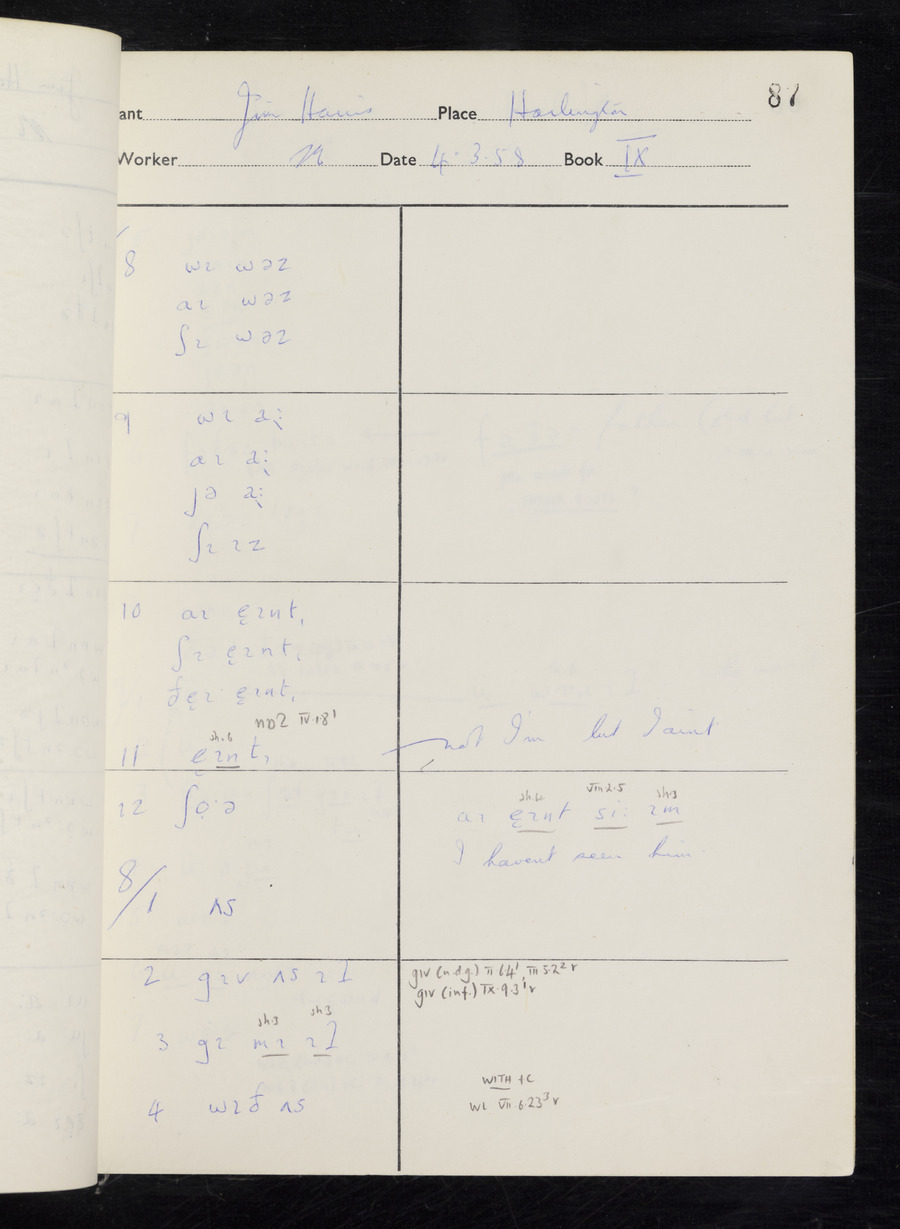 87
ant Jim Harris Place Harlington
Worker N Date 4.3.58 Book IX
8 wɪ wəz
aɪ wəz
ʃɪ wəz
9 wɪ
aɪ
jə
ʃɪ ɪz
10 aɪ ęɪnt,
ʃɪ ęɪnt,
ðęɪ ęɪnt,
nɒʔ IV.18¹
sh.6
11 ęɪnt,
not I'm but I aint
12 ʃọ·ə
sh.6 VIII.2.5 sh.3
aɪ ęɪnt si: ɪm
I havent seen him
8/1 ʌs
2 gɪv ʌs ɪʔ
gɪv (ndg.) II 6.4¹ III 5.2² r
gɪv (inf.) IX.9.3¹ r
sh.3 sh3
3 gɪ mɪ ɪʔ
4 wɪð ʌs
WITH +C
wɪ VII.6.23³ r